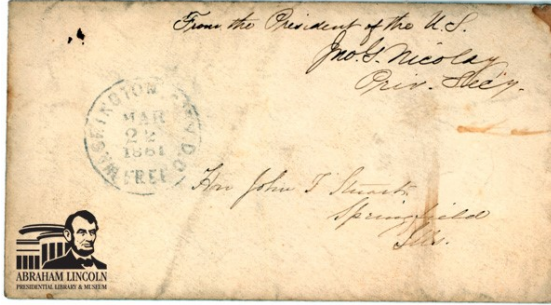 From the President of the U.S.
Jno. G. Nicolay
Priv. Sec'y.
WASHINGTON CITY D.C.
MAR
22
1861
FREE
Hon John T Stuart
Springfield
Ills.
ABRAHAM LINCOLN
PRESIDENTIAL LIBRARY & MUSEUM